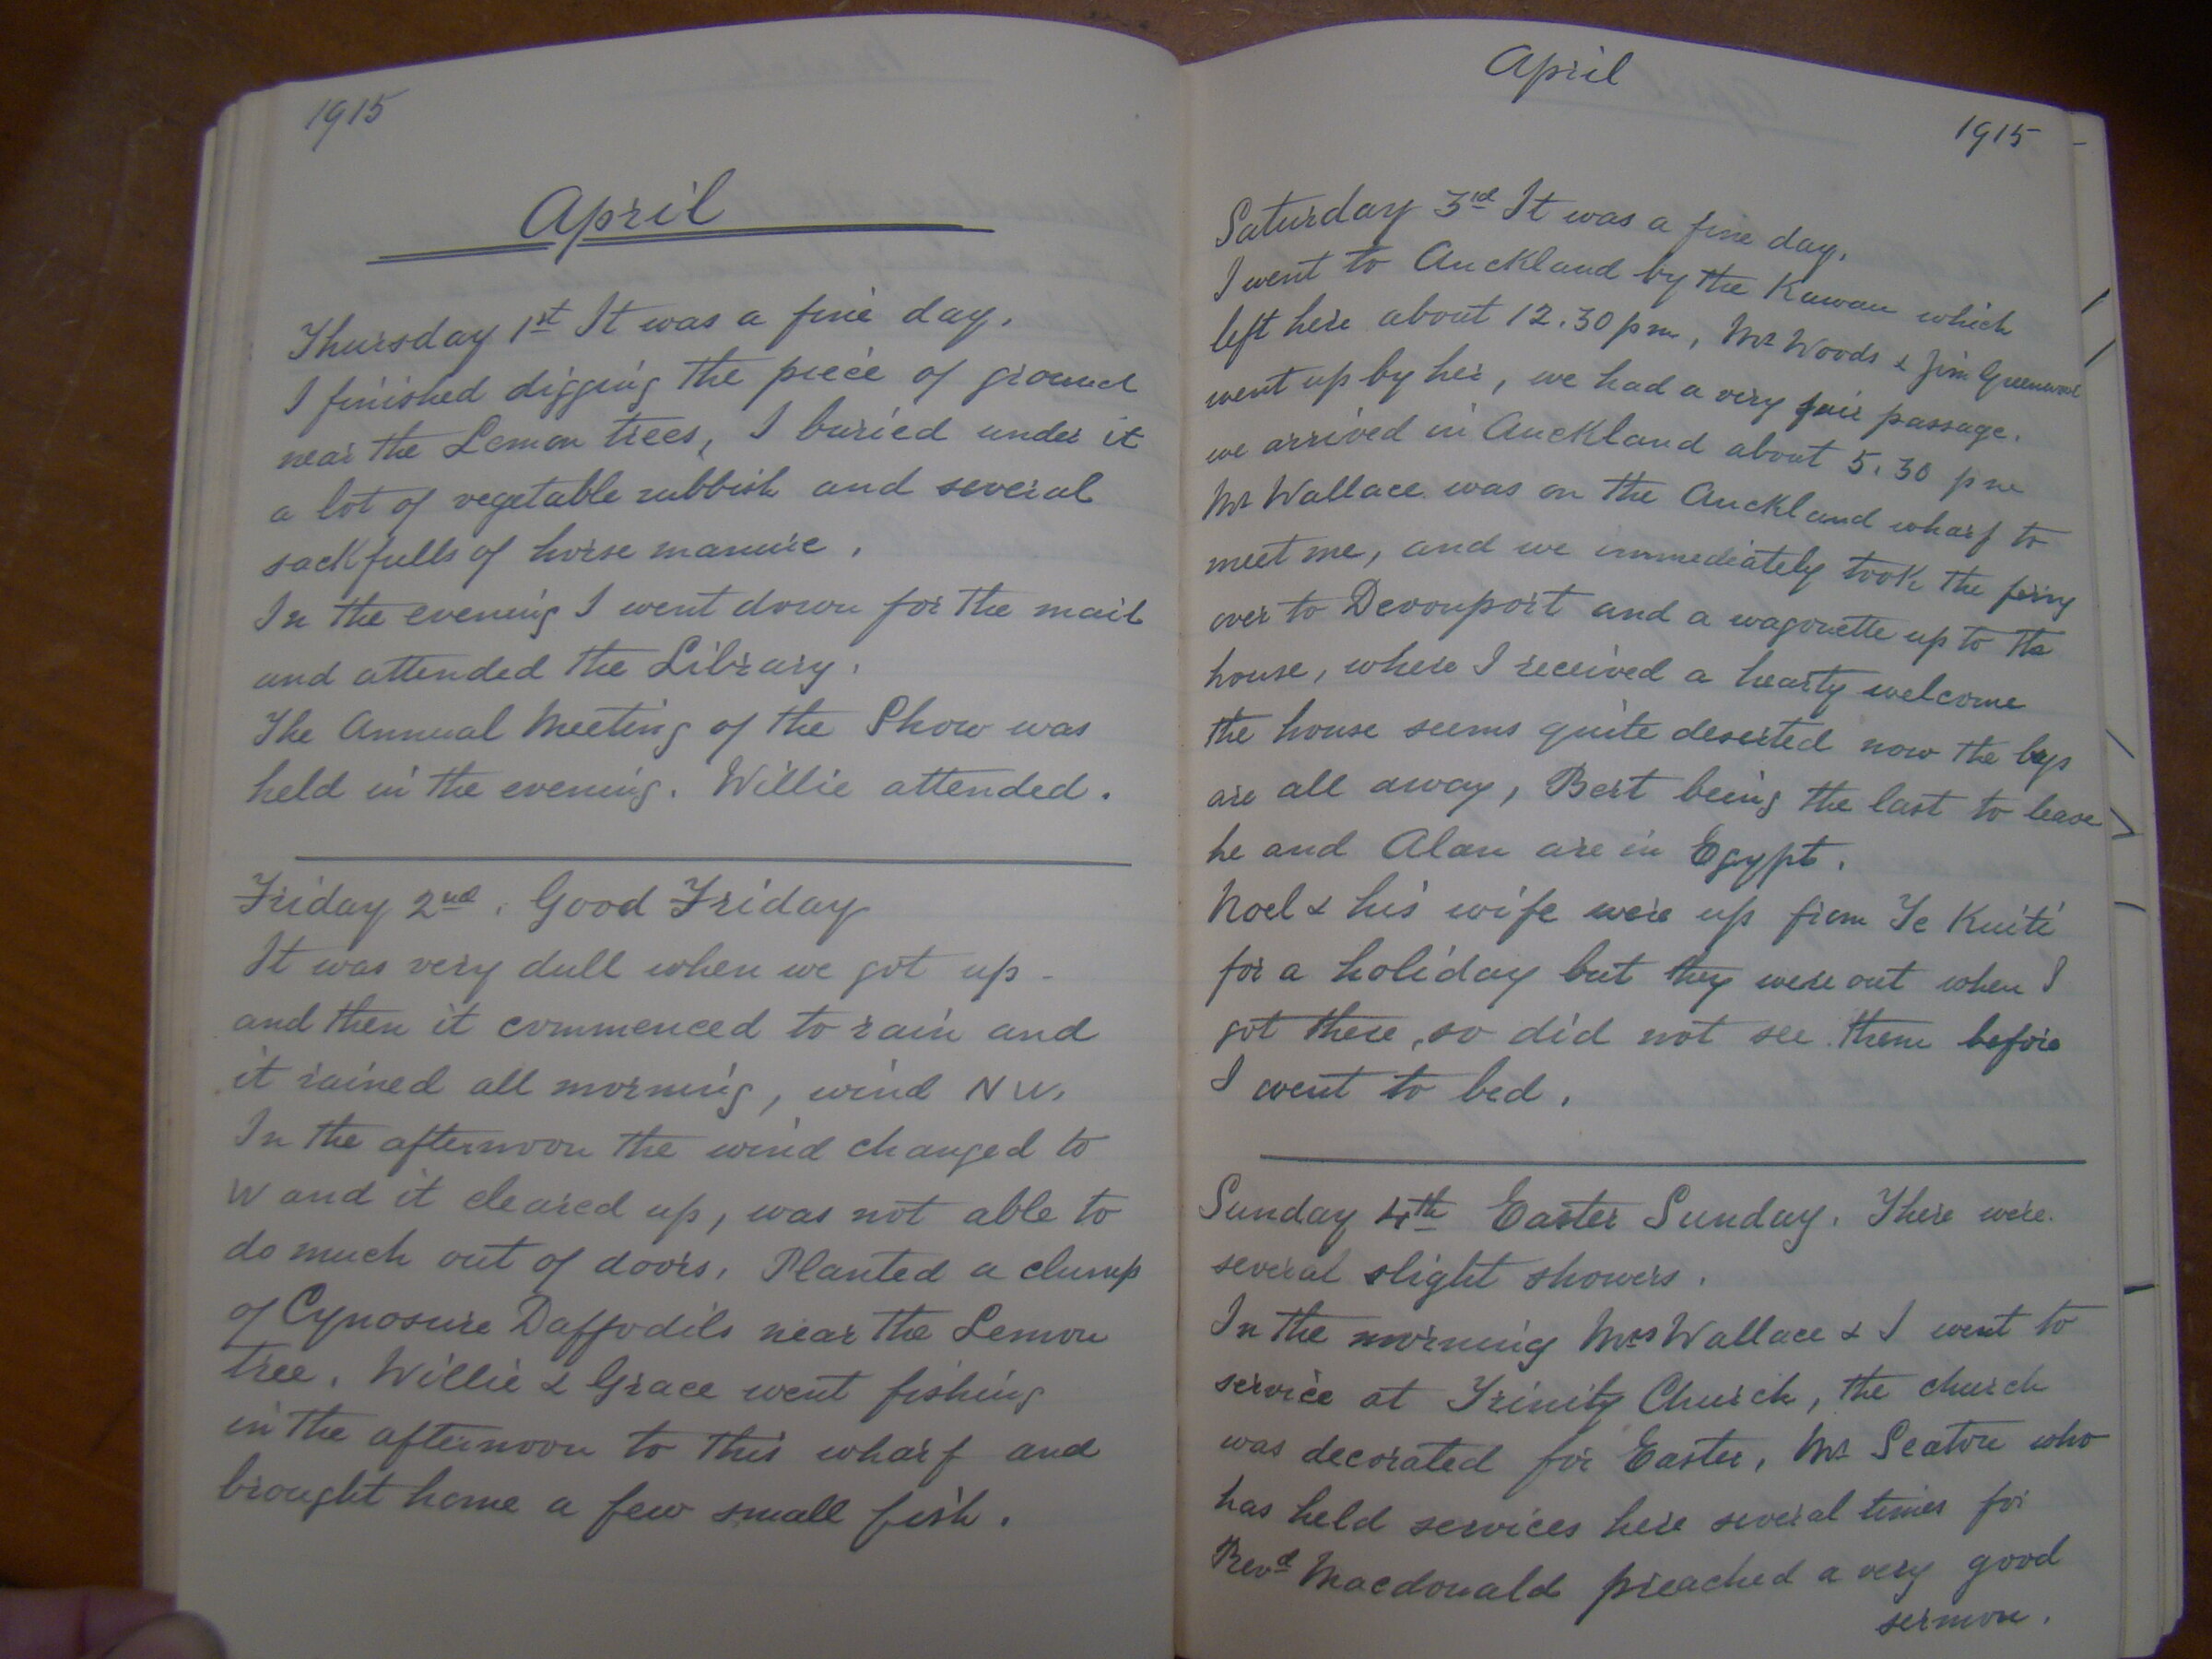 1915
April
Thursday 1st It was a fine day.
I finished digging the piece of ground
near the Lemon trees, I buried under it
a lot of vegetable rubbish and several
sackfulls of horse manure.
In the evening I went down for the mail
and attended the Library.
The Annual Meeting of the Show was
held in the evening. Willie attended.
Friday 2nd. Good Friday
It was very dull when we got up
and then it commenced to rain and
it rained all morning, wind NW.
In the afternoon the wind changed to
W and it cleared up, was not able to
do much out of doors. Planted a clump
of Cynosure Daffodils near the Lemon
tree. Willie & Grace went fishing
in the afternoon to this wharf and
brought home a few small fish.
April
1915
Saturday 3rd It was a fine day.
I went to Auckland by the Kawau which
left here about 12.30 pm, Mr Woods & Jim Greenwood
went up by her, we had a very fair passage.
we arrived in Auckland about 5.30 pm
Mr Wallace was on the Auckland wharf to
meet me, and we immediately took the ferry
over to Devonport and a wagonette up to the
house, where I received a hearty welcome
the house seems quite deserted now the boys
are all away, Bert being the last to leave
he and Alan are in Egypt.
Noel & his wife were up from Te Kuiti
for a holiday but they were out when I
got there, so did not see them before
I went to bed.
Sunday 4th Easter Sunday. There were
several slight showers.
In the morning Mrs Wallace & I went to
service at Trinity Church, the church
was decorated for Easter, Mr Seaton who
has held services here several times for
Revd Macdonald preached a very good
sermon.